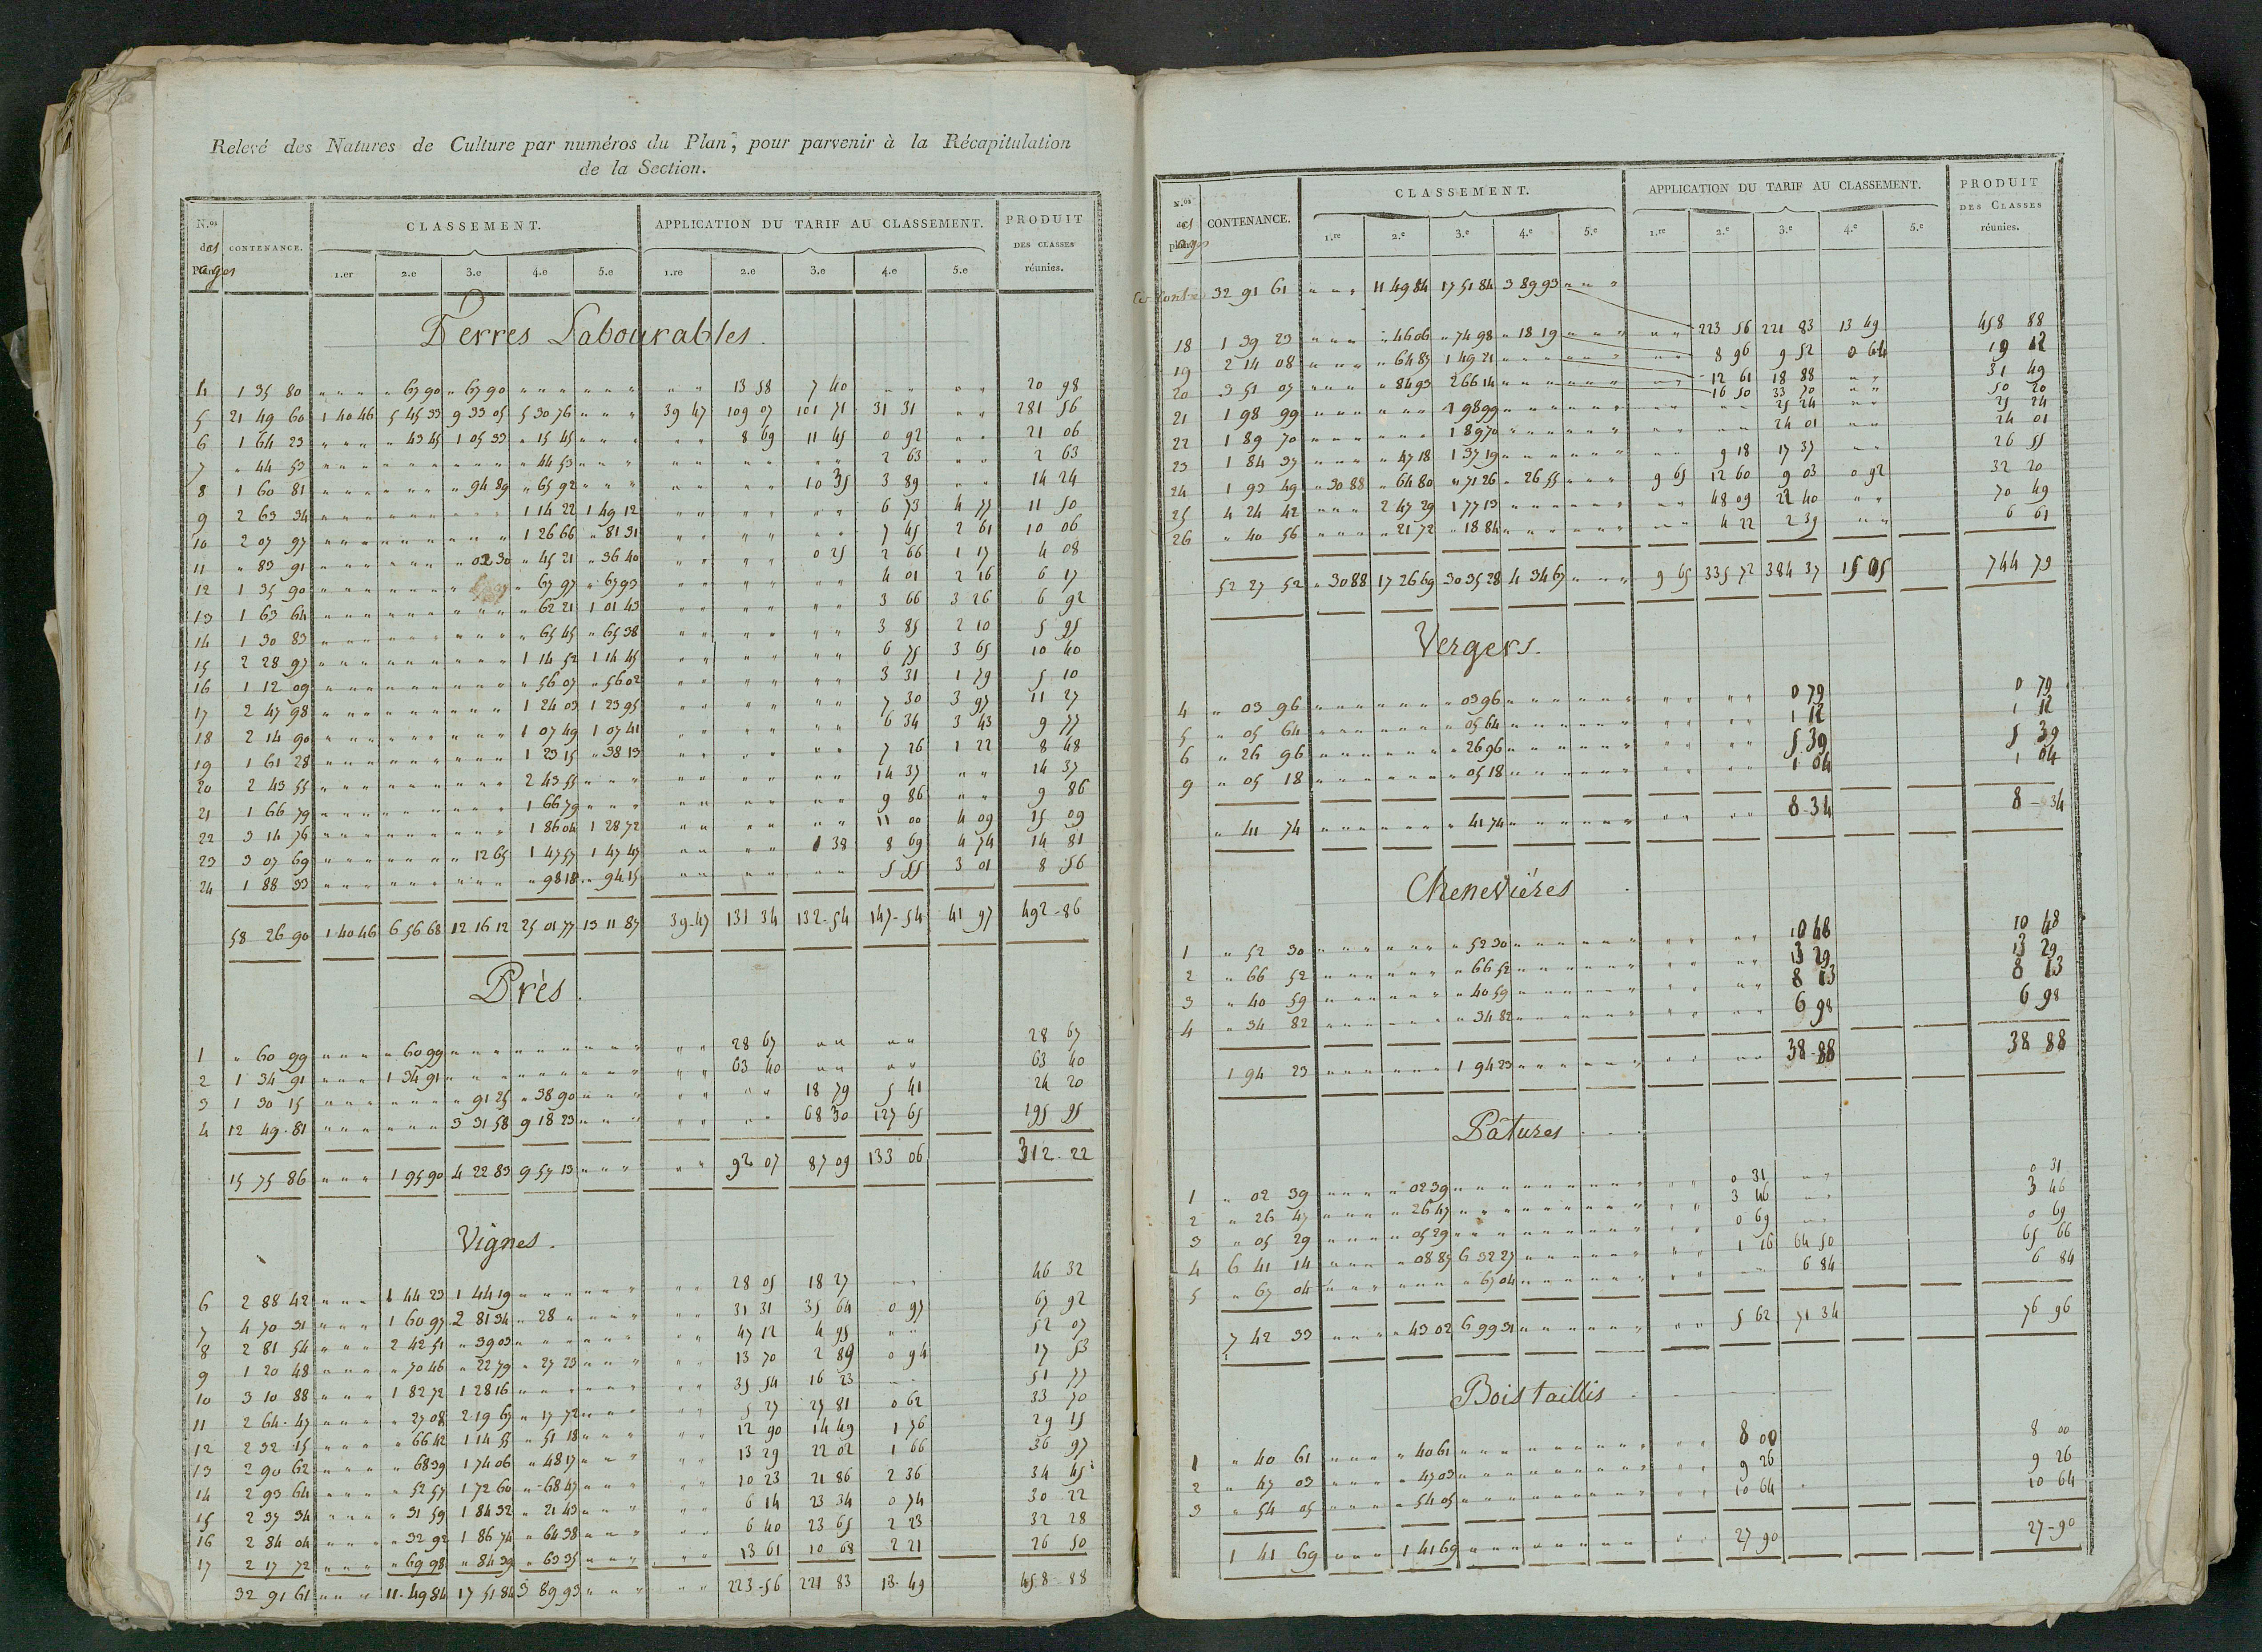 Relevé des Natures de Culture par numéros du Plan, pour parvenir à la Récapitulation
de la Section.
N.os des Pages CONTENANCE. CLASSEMENT. APPLICATION DU TARIF AU CLASSEMENT. PRODUIT DES CLASSES réunies.
1.er 2.e 3.e 4.e 5.e 1.re 2.e 3.e 4.e 5.e
Terres Labourables.
4 1 35 80 " " " " 67 90 " 67 90 " " " " " " " " 13 58 7 40 " " " " 20 98
5 21 49 60 1 40 46 5 45 33 9 33 05 5 30 76 " " " 39 47 109 07 101 71 31 31 " " 281 56
6 1 64 23 " " " " 43 45 1 05 33 " 15 45 " " " " " 8 69 11 45 0 92 " " 21 06
7 " 44 53 " " " " " " " " " " 44 53 " " " " " " " " " 2 63 " " 2 63
8 1 60 81 " " " " " " " 94 89 " 65 92 " " " " " " " 10 35 3 89 " " 14 24
9 2 63 34 " " " " " " " " " 1 14 22 1 49 12 " " " " " " 6 73 4 77 11 50
10 2 07 97 " " " " " " " " " 1 26 66 " 81 31 " " " " " " 7 45 2 61 10 06
11 " 83 91 " " " " " " " 02 30 " 45 21 " 36 40 " " " " 0 25 2 66 1 17 4 08
12 1 35 90 " " " " " " " " 67 97 " 67 93 " " " " " " 4 01 2 16 6 17
13 1 63 64 " " " " " " " " " " 62 21 1 01 43 " " " " " " 3 66 3 26 6 92
14 1 30 83 " " " " " " " " " " 65 45 " 65 38 " " " " " " 3 85 2 10 5 95
15 2 28 97 " " " " " " " " " 1 14 52 1 14 45 " " " " " " 6 75 3 65 10 40
16 1 12 09 " " " " " " " " " " 56 07 " 56 02 " " " " " " 3 31 1 79 5 10
17 2 47 98 " " " " " " " " " 1 24 03 1 23 95 " " " " " " 7 30 3 97 11 27
18 2 14 90 " " " " " " " " " 1 07 49 1 07 41 " " " " " " 6 34 3 43 9 77
19 1 61 28 " " " " " " " " " 1 23 15 " 38 13 " " " " " " 7 26 1 22 8 48
20 2 43 55 " " " " " " " " " 2 43 55 " " " " " " " " " 14 37 " " 14 37
21 1 66 79 " " " " " " " " " 1 66 79 " " " " " " " " " 9 86 " " 9 86
22 3 14 76 " " " " " " " " " 1 86 04 1 28 72 " " " " " " 11 00 4 09 15 09
23 3 07 69 " " " " " " " 12 65 1 47 57 1 47 47 " " " " 1 38 8 69 4 74 14 81
24 1 88 33 " " " " " " " " " " 98 18 " 94 15 " " " " " " 5 55 3 01 8 56
58 26 90 1 40 46 6 56 68 12 16 12 25 01 77 13 11 87 39-47 131 34 132-54 147-54 41 97 492-86
Prés.
1 " 60 99 " " " " 60 99 " " " " " " " " " " " 28 67 " " " " 28 67
2 1 34 91 " " " 1 34 91 " " " " " " " " " " " 63 40 " " " " 63 40
3 1 30 15 " " " " " " " 91 25 " 38 90 " " " " " " " 18 79 5 41 24 20
4 12 49 81 " " " " " " 3 31 58 9 18 23 " " " " " " " 68 30 127 65 195 95
15 75 86 " " " 1 95 90 4 22 83 9 57 13 " " " " " 92 07 87 09 133 06 312-22
Vignes.
6 2 88 42 " " " 1 44 23 1 44 19 " " " " " " " " 28 05 18 27 " " 46 32
7 4 70 31 " " " 1 60 97 2 81 34 " 28 " " " " " " 31 31 35 64 0 97 67 92
8 2 81 54 " " " 2 42 51 " 39 03 " " " " " " " " 47 12 4 95 " " 52 07
9 1 20 48 " " " " 70 46 " 22 79 " 27 23 " " " " " 13 70 2 89 0 94 17 53
10 3 10 88 " " " 1 82 72 1 28 16 " " " " " " " " 35 54 16 23 " " 51 77
11 2 64 47 " " " " 27 08 2 19 67 " 17 72 " " " " " 5 27 27 81 0 62 33 70
12 2 32 15 " " " " 66 42 1 14 55 " 51 18 " " " " " 12 90 14 49 1 76 29 15
13 2 90 62 " " " " 68 39 1 74 06 " 48 17 " " " " " 13 29 22 02 1 66 36 97
14 2 93 64 " " " " 52 57 1 72 60 " 68 47 " " " " " 10 23 21 86 2 36 34 45
15 2 37 34 " " " " 31 59 1 84 32 " 21 43 " " " " " 6 14 23 34 0 74 30 22
16 2 84 04 " " " " 32 92 1 86 74 " 64 38 " " " " " 6 40 23 65 2 23 32 28
17 2 17 72 " " " " 69 98 " 84 39 " 63 35 " " " " " 13 61 10 68 2 21 26 50
32 91 61 " " " 11 49 84 17 51 84 3 89 93 " " " " " 223-56 221 83 13-49 458-88
N.os des Pages CONTENANCE. CLASSEMENT. APPLICATION DU TARIF AU CLASSEMENT. PRODUIT DES CLASSES réunies.
1.re 2.e 3.e 4.e 5.e 1.re 2.e 3.e 4.e 5.e
Ci contre 32 91 61 " " " 11 49 84 17 51 84 3 89 93 " " " 223 56 221 83 13 49 458 88
18 1 39 23 " " " " 46 06 " 74 98 " 18 19 " " " " " 8 96 9 52 0 64 19 12
19 2 14 08 " " " " 64 87 1 49 21 " " " " " " " " 12 61 18 88 " " 31 49
20 3 51 07 " " " " 84 93 2 66 14 " " " " " " " " 16 50 33 70 " " 50 20
21 1 98 99 " " " " " " 1 98 99 " " " " " " " " " " 25 24 " " 25 24
22 1 89 70 " " " " " " 1 89 70 " " " " " " " " " " 24 01 " " 24 01
23 1 84 37 " " " " 47 18 1 37 19 " " " " " " " " 9 18 17 37 " " 26 55
24 1 93 49 " 30 88 " 64 80 " 71 26 " 26 55 " " " 9 65 12 60 9 03 0 92 32 20
25 4 24 42 " " " 2 47 29 1 77 13 " " " " " " " " 48 09 22 40 " " 70 49
26 " 40 56 " " " " 21 72 " 18 84 " " " " " " " " 4 22 2 39 " " 6 61
52 27 52 " 30 88 17 26 69 30 35 28 4 34 67 " " " 9 65 335 72 384 37 15 05 744 79
Vergers.
4 " 03 96 " " " " " " " 03 96 " " " " " " " " " " 0 79 0 79
5 " 05 64 " " " " " " " 05 64 " " " " " " " " " " 1 12 1 12
6 " 26 96 " " " " " " " 26 96 " " " " " " " " " " 5 39 5 39
9 " 05 18 " " " " " " " 05 18 " " " " " " " " " " 1 04 1 04
" 41 74 " " " " " " " 41 74 " " " " " " " " " " 8-34 8-34
Chenevières
1 " 52 30 " " " " " " " 52 30 " " " " " " " " " " 10 48 10 48
2 " 66 52 " " " " " " " 66 52 " " " " " " " " " " 13 29 13 29
3 " 40 59 " " " " " " " 40 59 " " " " " " " " " " 8 13 8 13
4 " 34 82 " " " " " " " 34 82 " " " " " " " " " " 6 98 6 98
1 94 23 " " " " " " 1 94 23 " " " " " " " " " " 38-88 38 88
Pâtures
1 " 02 39 " " " " 02 39 " " " " " " " " " " " 0 31 " " 0 31
2 " 26 47 " " " " 26 47 " " " " " " " " " " " 3 46 " " 3 46
3 " 05 29 " " " " 05 29 " " " " " " " " " " " 0 69 " " 0 69
4 6 41 14 " " " " 08 87 6 32 27 " " " " " " " " 1 16 64 50 65 66
5 " 67 04 " " " " " " " 67 04 " " " " " " " " " " 6 84 6 84
7 42 33 " " " " 43 02 6 99 31 " " " " " " " " 5 62 71 34 76 96
Bois taillis
1 " 40 61 " " " " 40 61 " " " " " " " " " " " 8 00 8 00
2 " 47 03 " " " " 47 03 " " " " " " " " " " " 9 26 9 26
3 " 54 05 " " " " 54 05 " " " " " " " " " " " 10 64 10 64
1 41 69 " " " 1 41 69 " " " " " " " " " " " 27 90 27-90